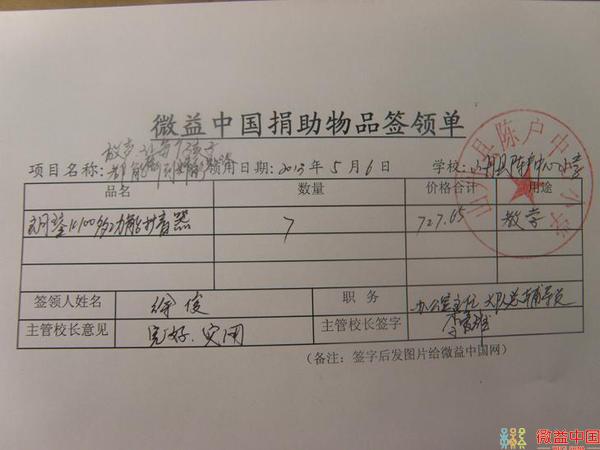 微益中国捐助物品签领单
放声 让每个孩子
项目名称: 都能 领用日期: 2013年5月6日 学校: 陈户中心小学
品名 数量 价格合计 用途
K100多功能扩音器 7 727.65 教学
签领人姓名 徐俊 职务 办公室主任 大队总辅导员
主管校长意见 完好、实用 主管校长签字
(备注: 签字后发图片给微益中国网)
县陈户中心小学
微益中国